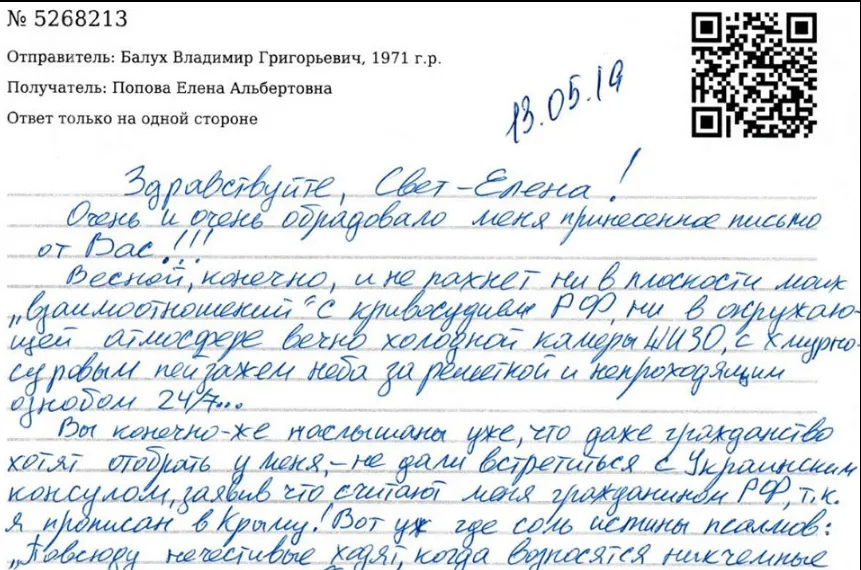 № 5268213
Отправитель: Балух Владимир Григорьевич, 1971 г.р.
Получатель: Попова Елена Альбертовна
Ответ только на одной стороне
13.05.19
Здравствуйте, Свет-Елена!
Очень и очень обрадовало меня принесенное письмо
от Вас!!!
Весной, конечно, и не пахнет ни в плоскости моих
„взаимоотношений" с кривосудием РФ, ни в окружаю-
щей атмосфере вечно холодной камеры ШИЗО, с хмурно-
суровым пейзажем неба за решеткой и непроходящим
ознобом 24/7...
Вы конечно-же наслышаны уже, что даже гражданство
хотят отобрать у меня,-не дали встретиться с Украинским
консулом, заявив что считают меня гражданином РФ, т.к.
я прописан в Крыму! Вот уж где соль истины псалмов:
„Повсюду нечестивые ходят, когда возносятся никчемные